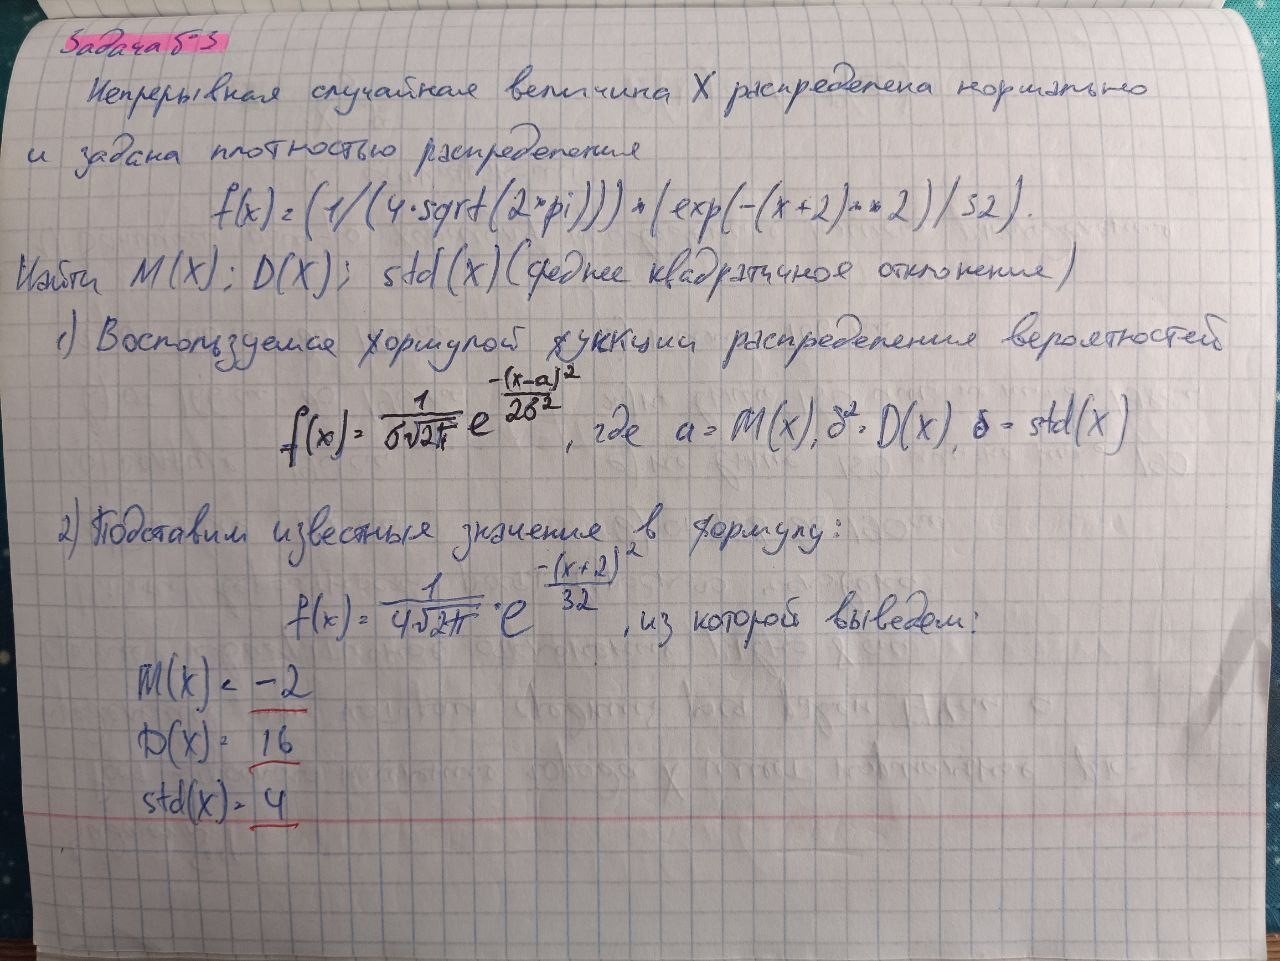 Задача 5-3
Непрерывная случайная величина X распределена нормально
и задана плотностью распределения
f(x) = (1/(4*sqrt(2*pi)))*(exp(-(x+2)**2)/32).
Найти M(X); D(X); std(X) (среднее квадратичное отклонение)
1) Воспользуемся формулой функции распределения вероятностей
f(x) = 1/(σ√2π) e^(-(x-a)²/2σ²), где a = M(X), σ² = D(X), σ = std(X)
2) Подставим известные значения в формулу:
f(x) = 1/(4√2π) · e^(-(x+2)²/32), из которой выведем:
M(X) = -2
D(X) = 16
std(X) = 4